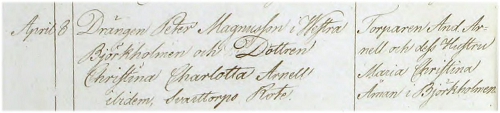 April 8 Drängen Peter Magnusson i Westra
Björkholmen och Dottren
Christina Charlotta Arnell
ibidem, Svarttorps Rote.
Torparen And. Ar-
nell och dess Hustru
Maria Christina
Åman i Björkholmen